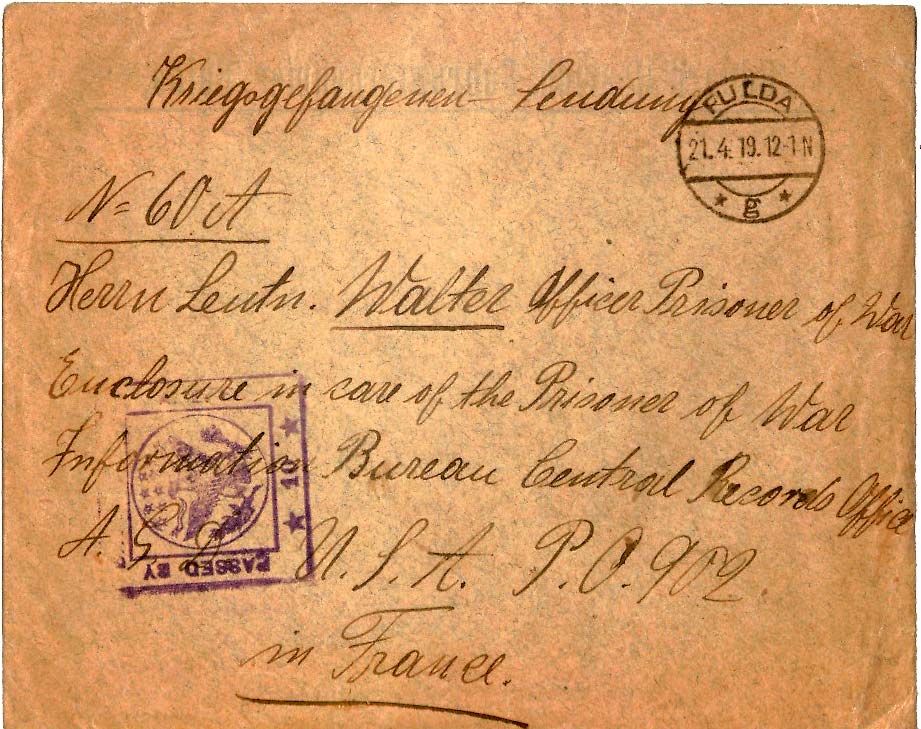 Kriegsgefangenen-Sendung
FULDA
21.4.19.12-1N
* g *
N= 60.A
Herrn Leutn. Walter Officer Prisoner of War
Enclosure in care of the Prisoner of War
Information Bureau Central Records Office
A. E. F. U. S. A. P. O. 902
in France.
★ 10 ★
PASSED BY